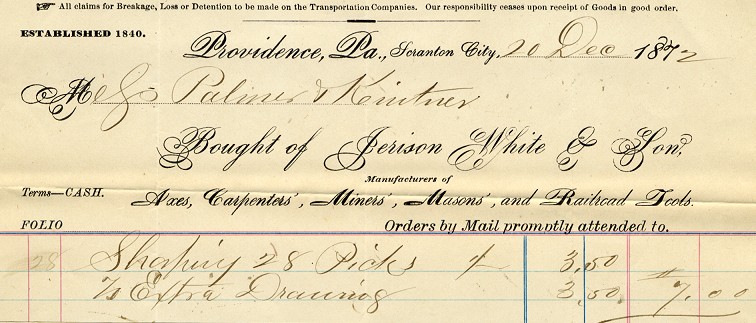 ☞ All claims for Breakage, Loss or Detention to be made on the Transportation Companies. Our responsibility ceases upon receipt of Goods in good order.
ESTABLISHED 1840.
Providence, Pa., Scranton City, 20 Dec 1872
Palmer & Kintner
Bought of Jerison White & Son,
Manufacturers of
Terms—CASH.
Axes, Carpenters', Miners', Masons', and Railroad Tools.
FOLIO
Orders by Mail promptly attended to.
28 Sharping 28 Picks 3,50
Extra Drawing 3,50 # 7.00